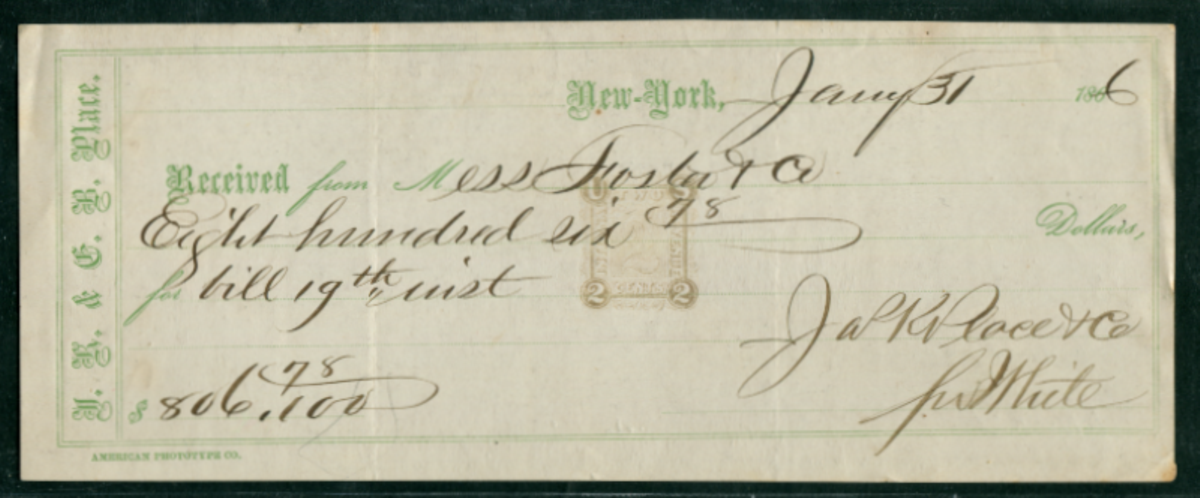 J. K. & E. B. Place.
New-York, Jany 31 1866
Received from Mess Foster & Co
Eight hundred six 78 Dollars,
for bill 19th inst
Jas K Place & Co
$ 806.78/100
pr White
AMERICAN PHOTOTYPE CO.
2 2